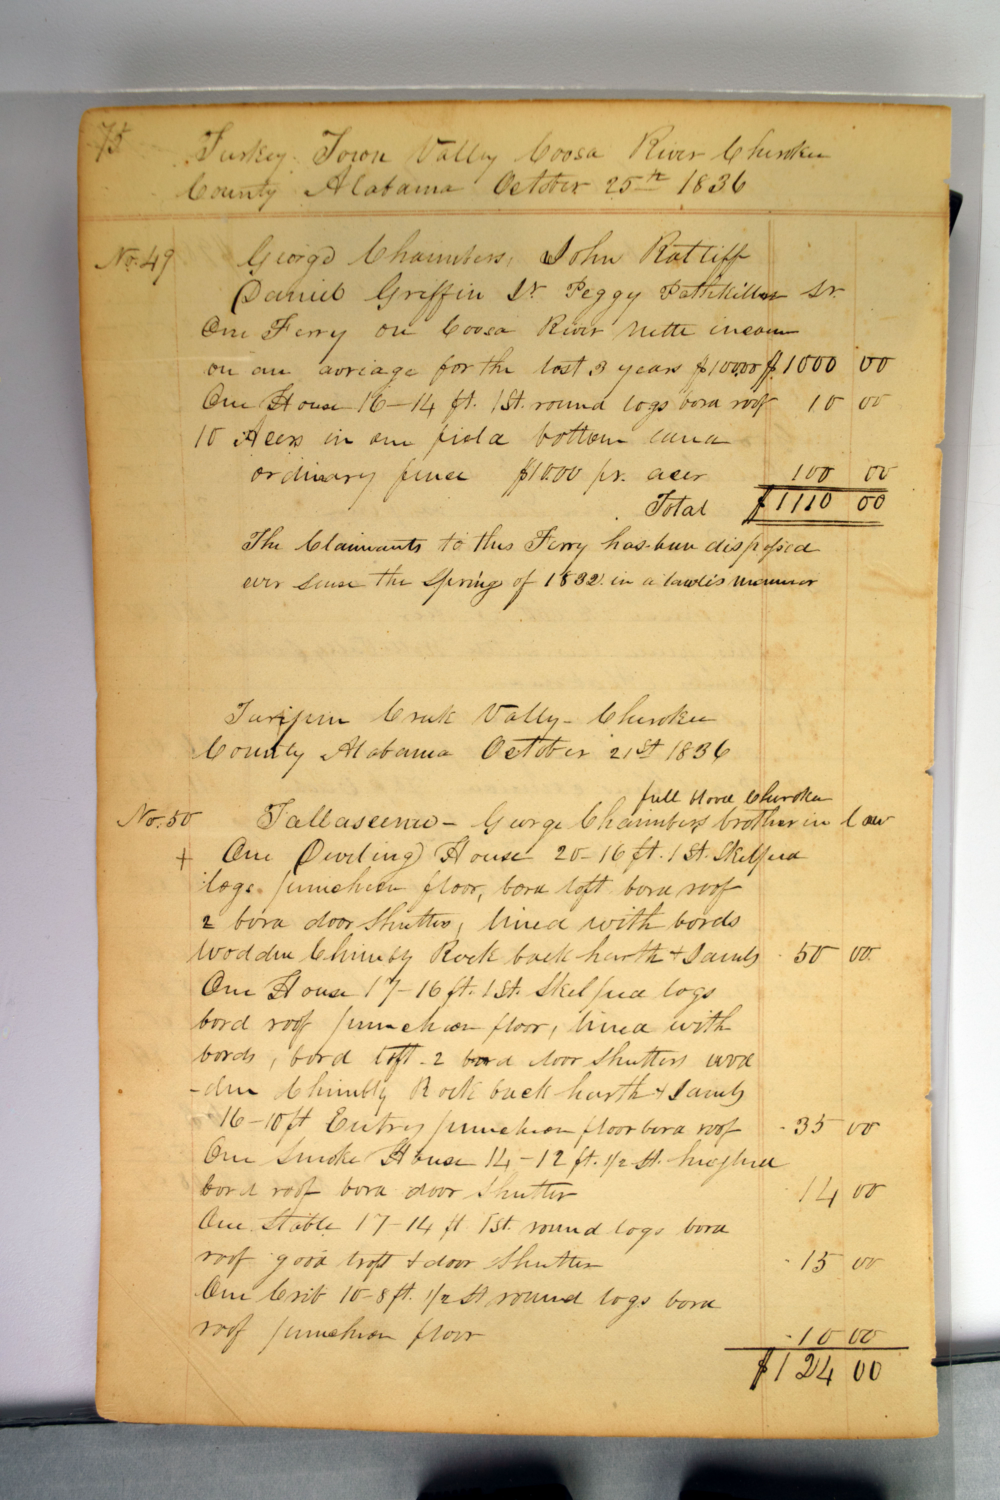 75
Turkey Town Vally Coosa River Cherokee
County Alabama October 25th 1836
No. 49 George Chaimbers, John Ratliff
Daniel Griffin Sr Peggy Pathkiller Sr.
One Ferry on Coosa River nette income
on an avriage for the last 3 years $1000.00 $1000 00
One House 16-14 ft. 1 St. round logs bord roof 10 00
10 Acers in one field bottom land
ordinary fence $10.00 pr. acer 100 00
Total $1110 00
The Claimants to this Ferry has been dispossed
ever sense the Spring of 1832 in a lawlis mannor
Turripin Creek Vally - Cherokee
County Alabama October 21st 1836
full blood Cherokee
No. 50 Tallaseenee - George Chaimbers brother in law
+ One Dweling House 20-16 ft. 1 St. Skelped
logs. puncheon floor, bord loft bord roof
2 bord door Shutters, lined with bords
wodden Chimbly Rock back harth & Jambs - 50 00
One House 17-16 ft. 1 St. Skelped logs
bord roof puncheon floor, lined with
bords, bord loft - 2 bord door Shutters wod
-den Chimbly Rock back harth & Jambs
16-10 ft Entry puncheon floor bord roof - 35 00
One Smoke House 14-12 ft. 1/2 St. hughed
bord roof bord door Shutter 14 00
One Stable 17-14 ft 1 St. round logs bord
roof good loft & door Shutter - 15 00
One Crib 10-8 ft. 1/2 St round logs bord
roof puncheon floor - 10 00
$124 00